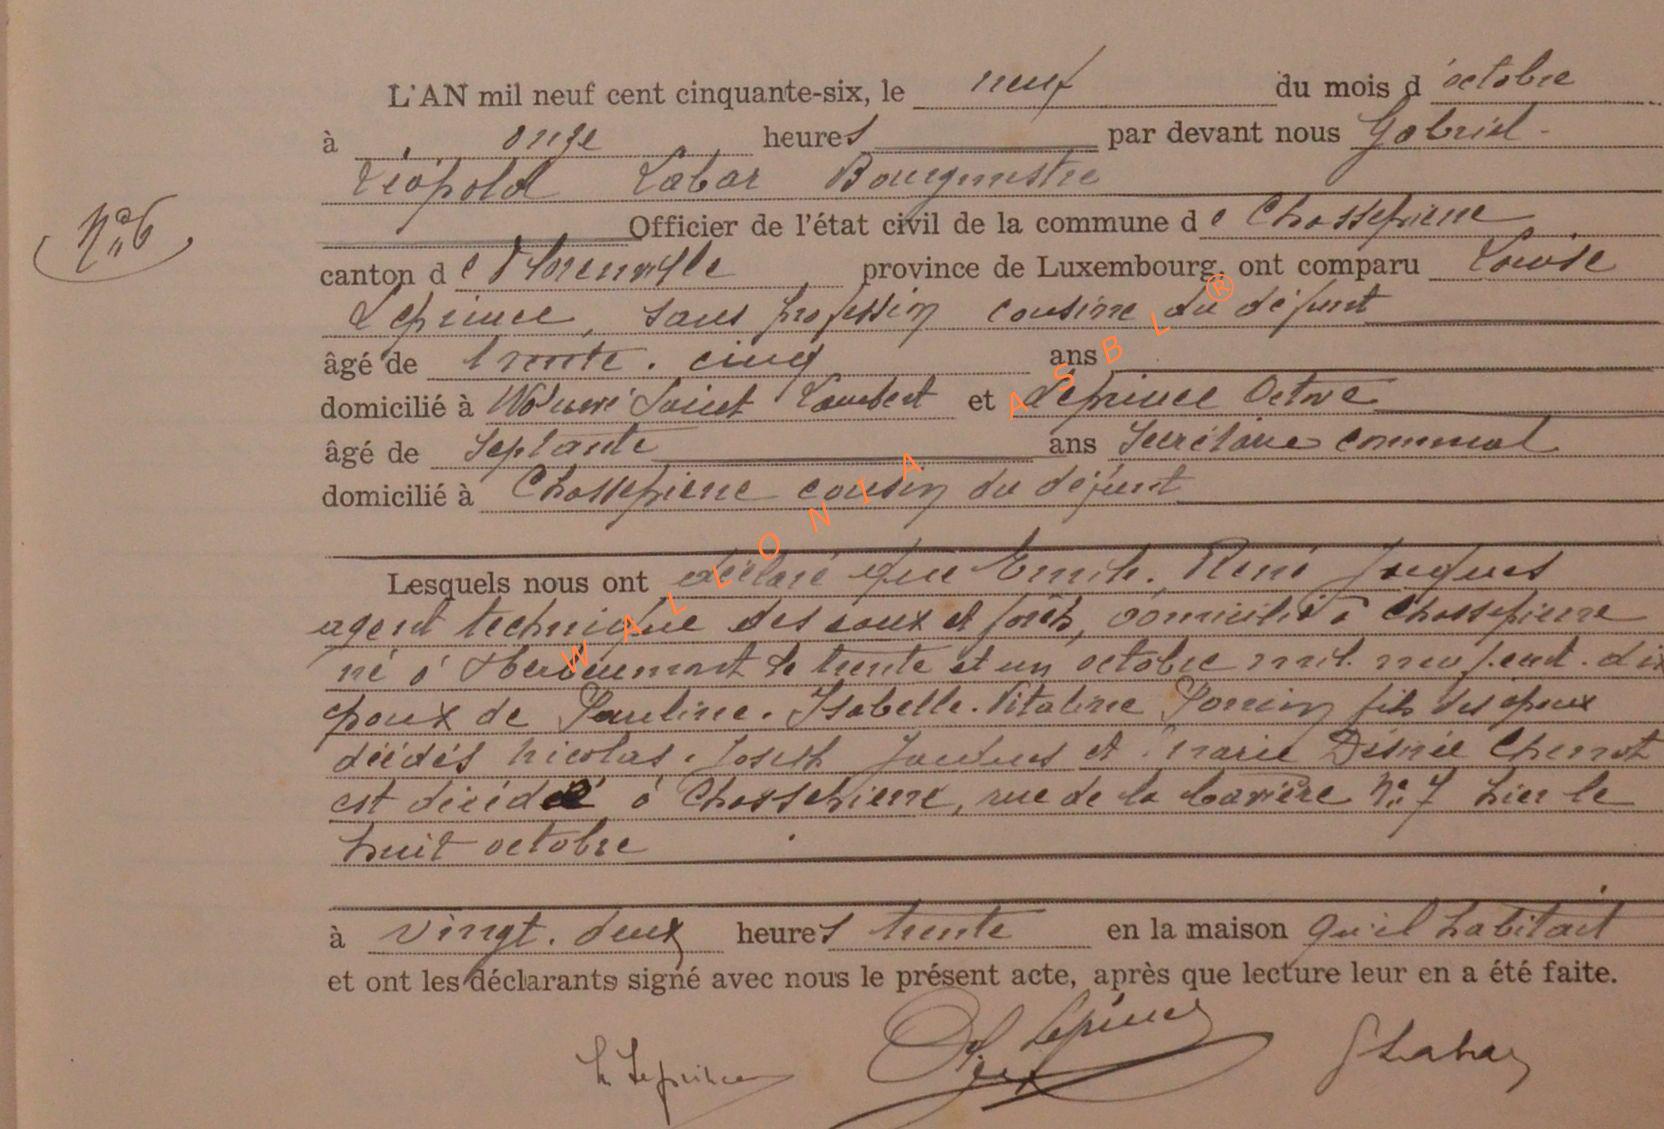 L'AN mil neuf cent cinquante-six, le neuf du mois d'octobre
à onze heures par devant nous Gabriel-
Léopold Labar Bourgmestre
N° 6
Officier de l'état civil de la commune de Chassepierre
canton de Florenville province de Luxembourg, ont comparu Louise
Leprince, sans profession cousine du défunt
âgé de trente-cinq ans
domicilié à Woluwé Saint Lambert et Leprince Octave
âgé de septante ans secrétaire communal
domicilié à Chassepierre cousin du défunt
Lesquels nous ont déclaré que Emile. René Jacques
agent technique des eaux et forêts, domicilié à Chassepierre
né à Herbeumont le trente et un octobre mil. neuf.cent.dix
époux de Pauline. Isabelle. Vitaline fils des époux
décédés Nicolas. Joseph Jacques et Marie Désirée
est décédé à Chassepierre, rue de la N° 7 hier le
huit octobre
à vingt.deux heures trente en la maison qu'il habitait
et ont les déclarants signé avec nous le présent acte, après que lecture leur en a été faite.
L Leprince Leprince G Labar
WALLONIA ASBL ®